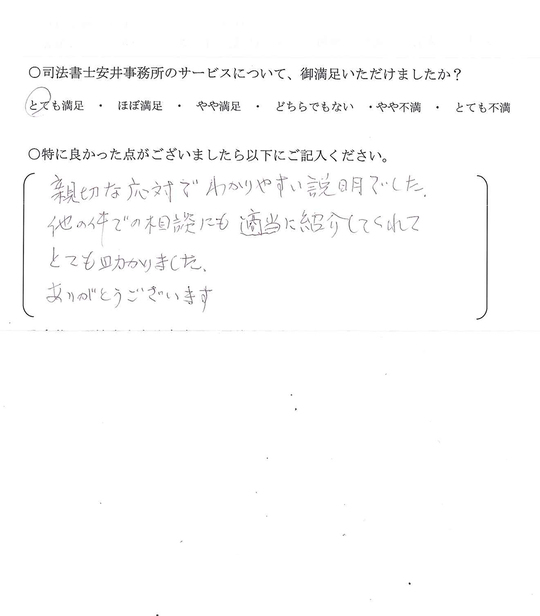 〇司法書士安井事務所のサービスについて、御満足いただけましたか？
とても満足 ・ ほぼ満足 ・ やや満足 ・ どちらでもない ・やや不満 ・ とても不満
〇特に良かった点がございましたら以下にご記入ください。
親切な応対で わかりやすい説明でした。
他の件での相談にも 適当に紹介してくれて
とても助かりました。
ありがとうございます